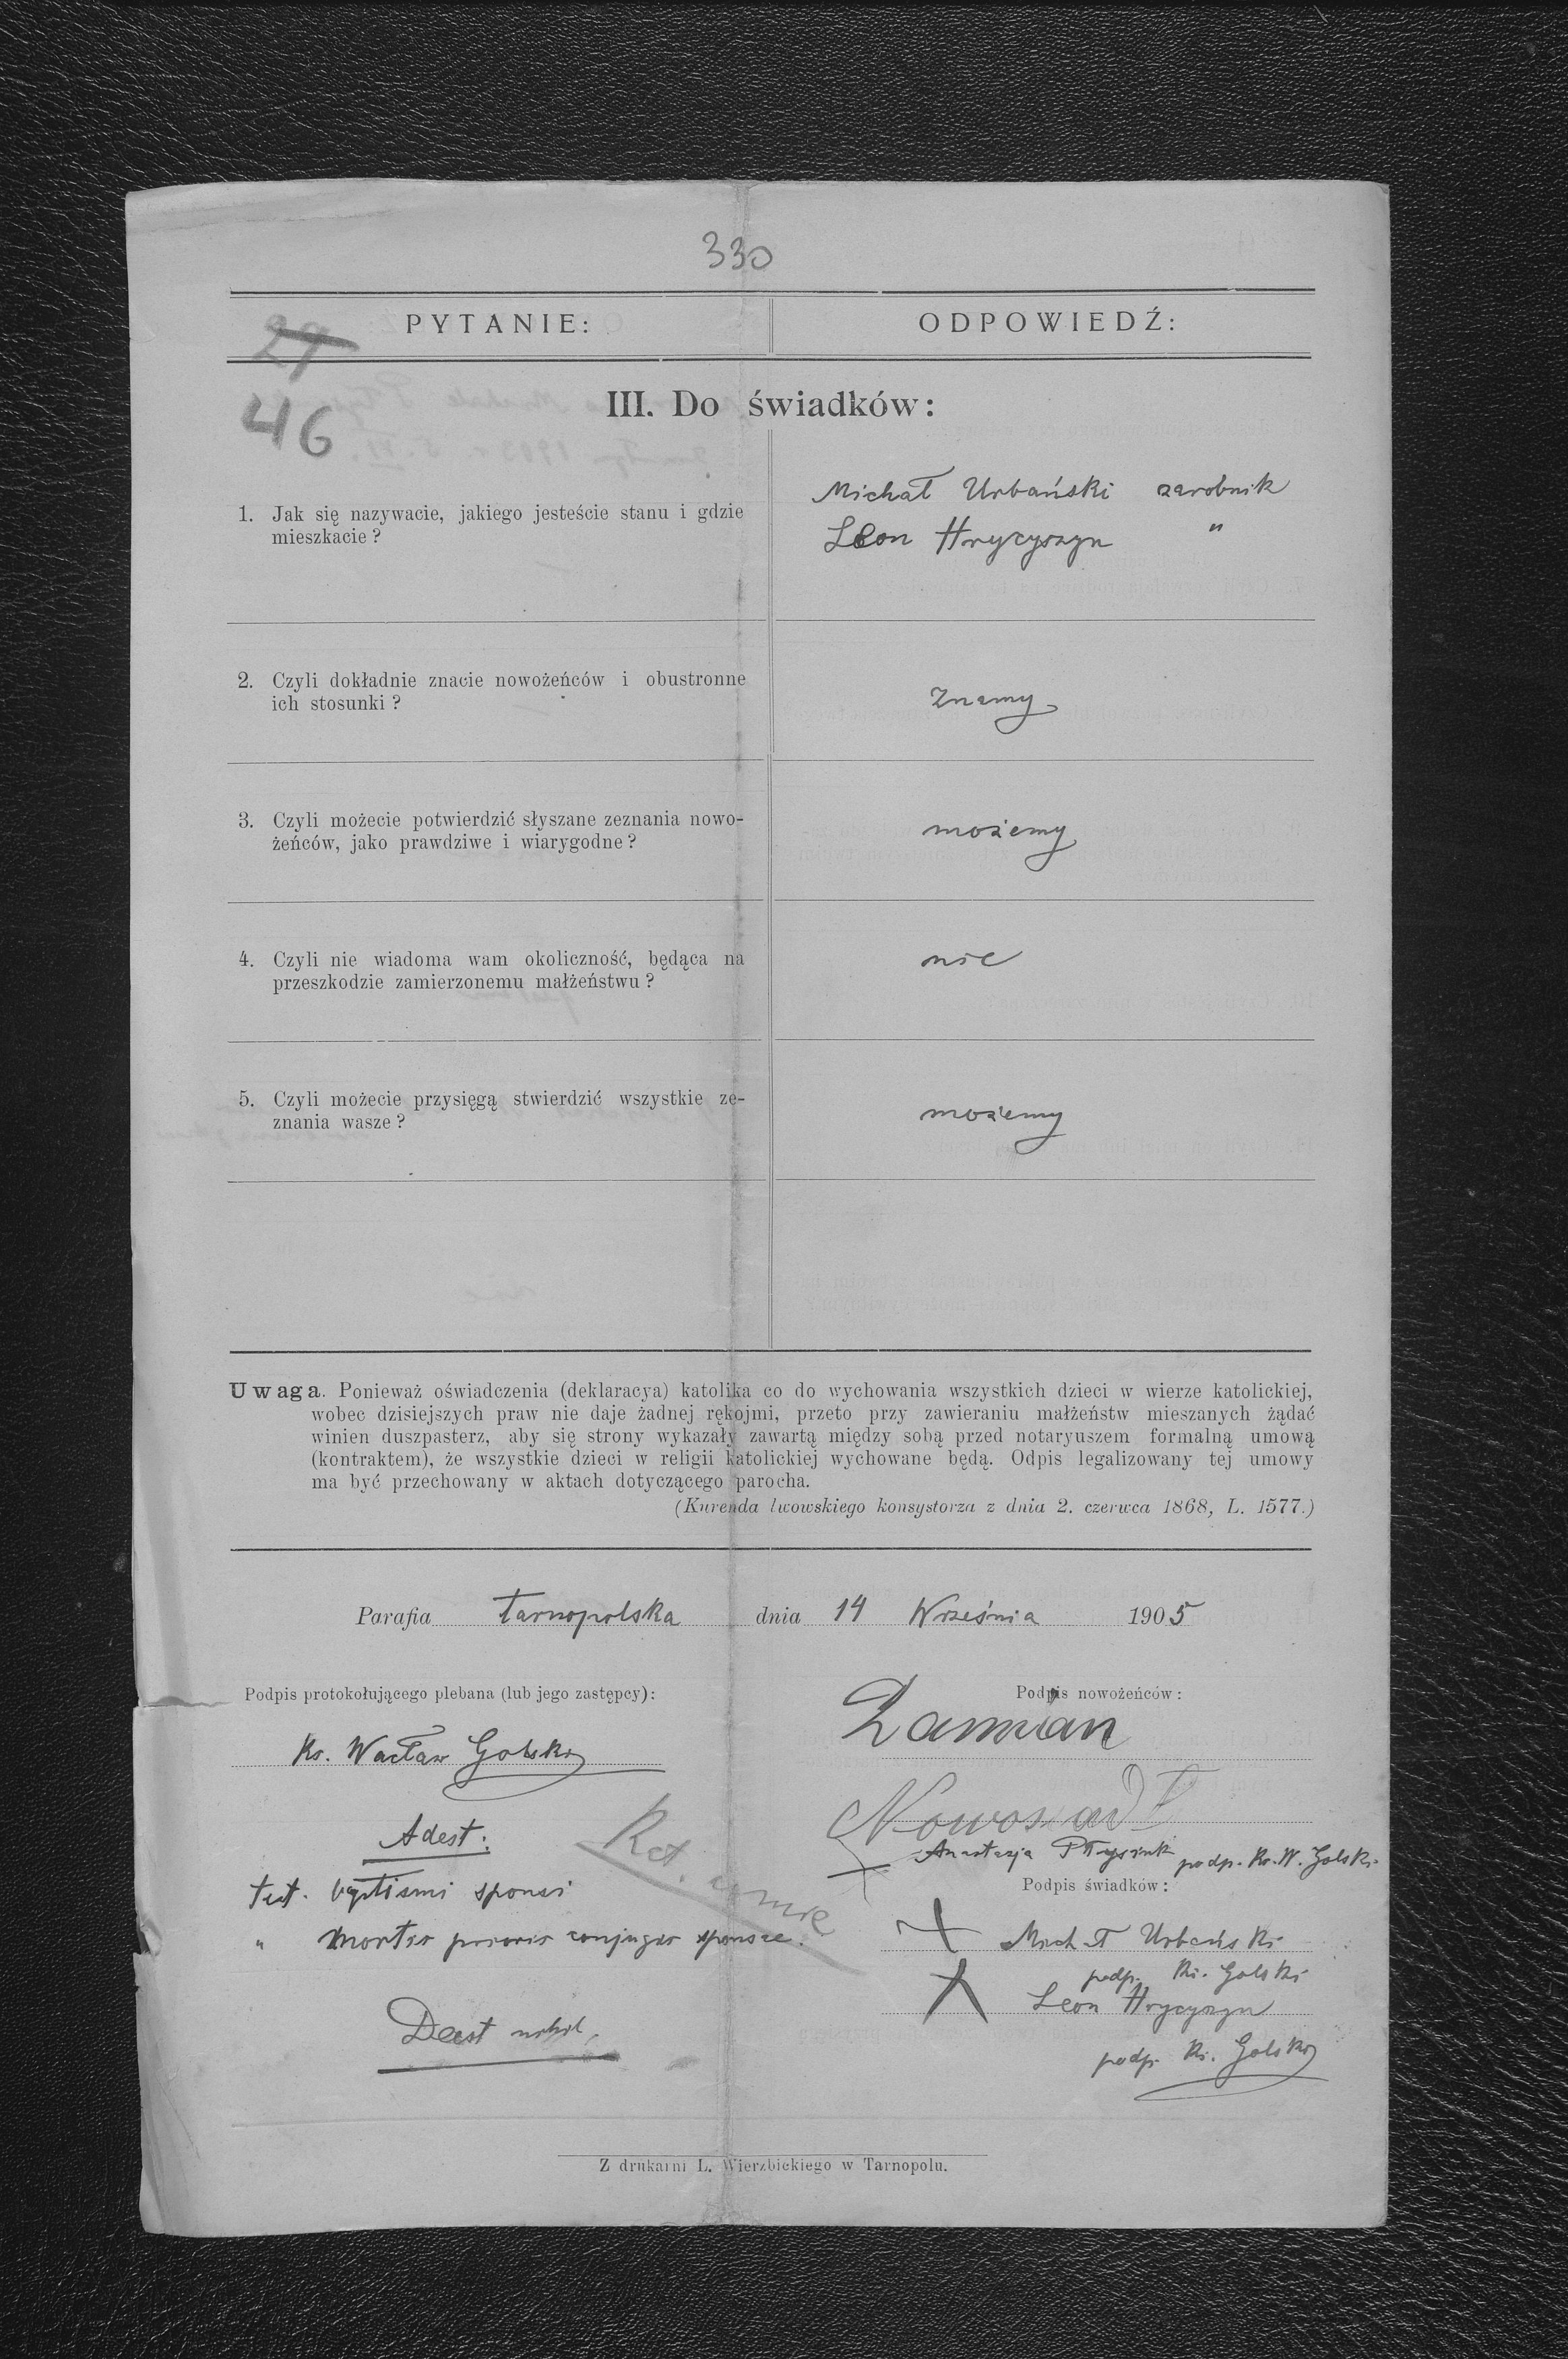 330
PYTANIE: ODPOWIEDŹ:
29
46
III. Do świadków:
1. Jak się nazywacie, jakiego jesteście stanu i gdzie
mieszkacie?
Michał Urbański zarobnik
Leon Hrycyszyn "
2. Czyli dokładnie znacie nowożeńców i obustronne
ich stosunki?
znamy
3. Czyli możecie potwierdzić słyszane zeznania nowo-
żeńców, jako prawdziwe i wiarygodne?
możemy
4. Czyli nie wiadoma wam okoliczność, będąca na
przeszkodzie zamierzonemu małżeństwu?
nie
5. Czyli możecie przysięgą stwierdzić wszystkie ze-
znania wasze?
możemy
Uwaga. Ponieważ oświadczenia (deklaracya) katolika co do wychowania wszystkich dzieci w wierze katolickiej,
wobec dzisiejszych praw nie daje żadnej rękojmi, przeto przy zawieraniu małżeństw mieszanych żądać
winien duszpasterz, aby się strony wykazały zawartą między sobą przed notaryuszem formalną umową
(kontraktem), że wszystkie dzieci w religii katolickiej wychowane będą. Odpis legalizowany tej umowy
ma być przechowany w aktach dotyczącego parocha.
(Kurenda lwowskiego konsystorza z dnia 2. czerwca 1868, L. 1577.)
Parafia tarnopolska dnia 14 Września 1905
Podpis protokołującego plebana (lub jego zastępcy):
Ks. Wacław Golski
Adest:
test. baptismi sponsi
" mortis prioris conjugis sponsae.
Deest nihil.
Podpis nowożeńców:
Damian
Nowosad
Anastazja podp. Ks. W. Golski
Podpis świadków:
Michał Urbański
podp. Ks. Golski
Leon Hrycyszyn
podp. Ks. Golski
Z drukarni L. Wierzbickiego w Tarnopolu.